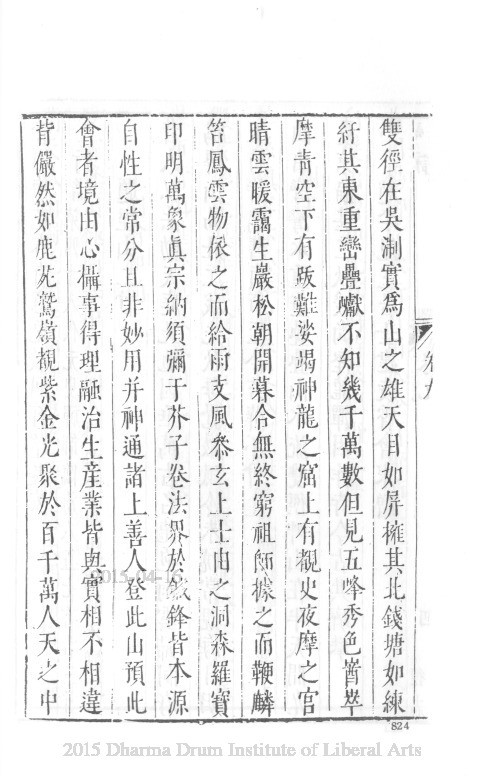 雙徑在吳淛實爲山之雄天目如屏擁其北錢塘如練
紆其東重巒疊巘不知幾千萬數但見五峰秀色窨崒
摩青空下有跋難娑竭神龍之窟上有覩史夜摩之宮
晴雲暖靄生巖松朝開暮合無終窮祖師據之而鞭麟
笞鳳雲物依之而給雨支風叅玄上士由之洞森羅寶
印明萬象眞宗納須彌于芥子卷法界於鍼鋒皆本源
自性之常分且非妙用并神通諸上善人登此山預此
會者境由心攝事得理融治生產業皆與實相不相違
背儼然如鹿苑鷲嶺覩紫金光聚於百千萬人天之中
卷九
2015-04-1
824
2015 Dharma Drum Institute of Liberal Arts